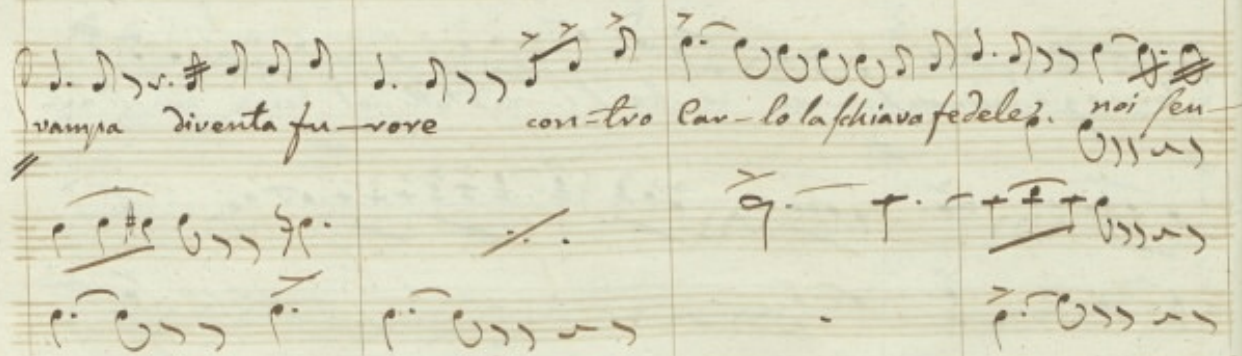 vampa diventa fu-rore con-tro Car-lo la schiava fedele. noi sen-